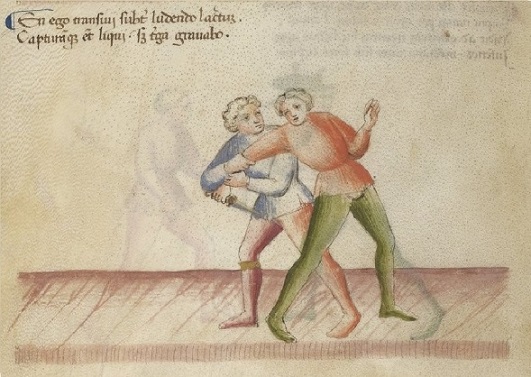 ¶ En ego transiui subt᾽ ludendo lac᾽tuꝫ.
Capturāqꝫ et̄ liqui. sꝫ t᾽ga grauabo.